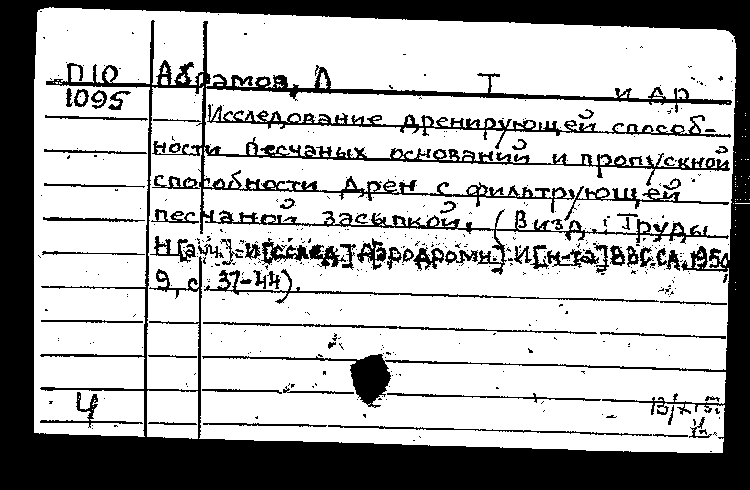 П10 Абрамов, Л Т и др
1095
Исследование дренирующей способ-
ности песчаных оснований и пропускной
способности дрен с фильтрующей
песчаной засыпкой. (В изд.: Труды
Н[ауч.]-И[сслед.] А[эродромн.] И[н-та] ВВС СА, 1950,
9, с. 37-44).
4